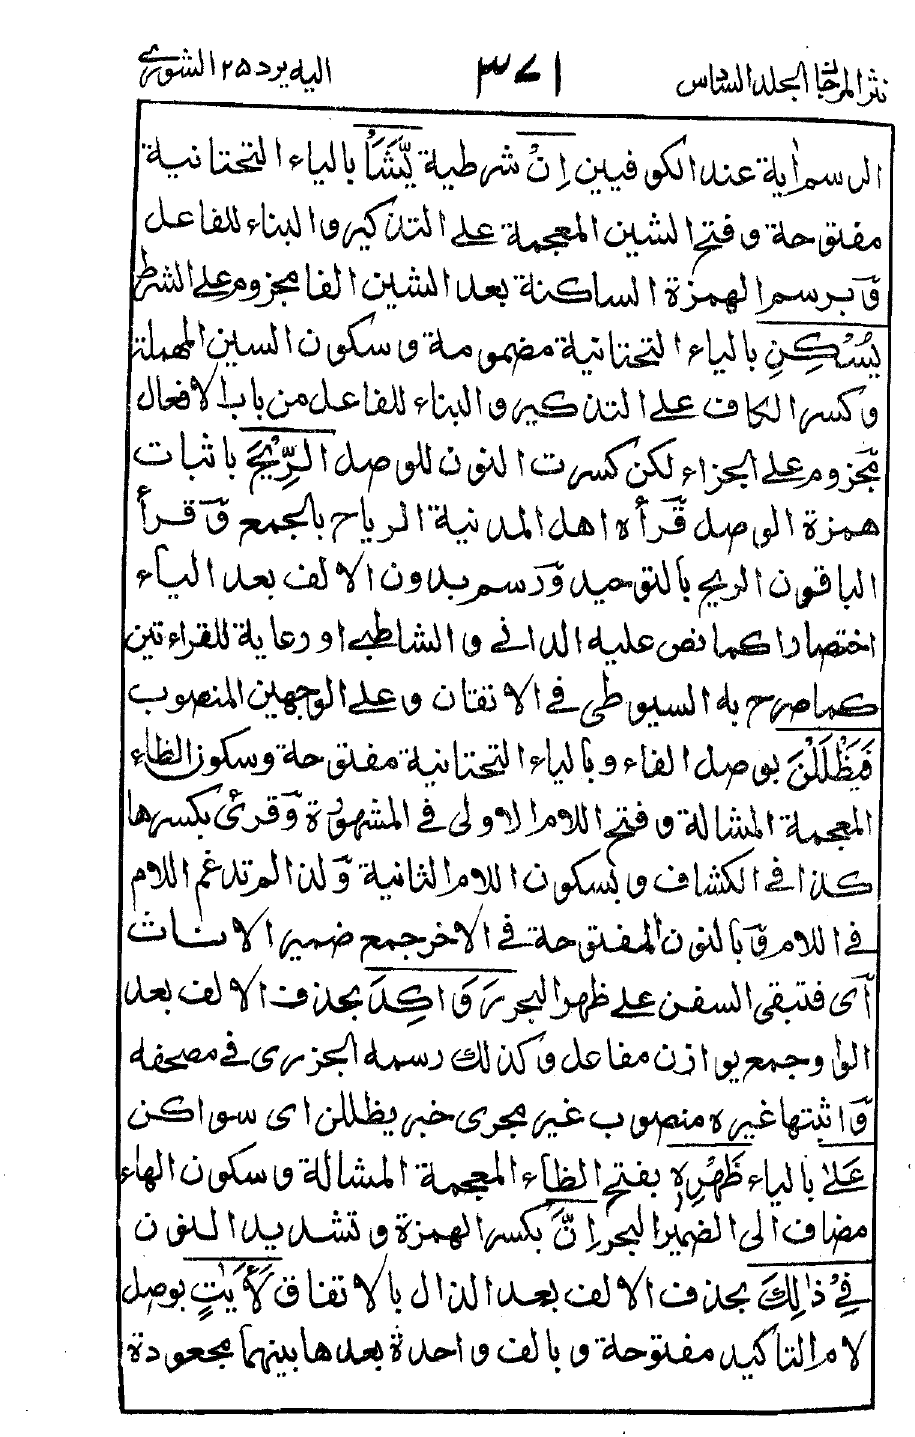 نثر المرجان الجلد السادس ٣٧١ اليه يرد ٢٥ الشورى
الرسم اٰية عند الكوفيين اِنْ شرطية يَّشَاْ بالياء التحتانية
مفتوحة و فتح الشين المعجمة على التذكير و البناء للفاعل
وَ برسم الهمزة الساكنة بعد الشين الفا مجزوم على الشرط
يُسْكِنِ بالياء التحتانية مضمومة و سكون السين المهملة
و كسر الكاف على التذكير و البناء للفاعل من باب الافعال
مجزوم على الجزاء لكن كسرت النون للوصل الرِّيْحَ باثبات
همزة الوصل قَرأه اهل المدنية الرياح بالجمع وَ قرأ
الباقون الريح بالتوحيد وَرسم بدون الالف بعد الياء
اختصارا كما نص عليه الداني و الشاطبي او رعاية للقراءتين
كما صرح به السيوطي في الاتقان و على الوجهين المنصوب
فَيَظْلَلْنَ بوصل الفاء و بالياء التحتانية مفتوحة و سكون الظاء
المعجمة المشالة و فتح اللام الاولى في المشهورة وَقرئ بكسرها
كذا في الكشاف و بسكون اللام الثانية وَلذا لم تدغم اللام
في اللام وَ بالنون المفتوحة في الاخر جمع ضمير الاناث
اَى فتبقى السفن على ظهر البحر رَوَاكِدَ بحذف الالف بعد
الواو جمع يوازن مفاعل وَكذلك رسمه الجزري في مصحفه
وَاثبتها غيره منصوب غير مجرى خبر يظللن اى سواكن
عَلىٰ بالياء ظَهْرِهٖ بفتح الظاء المعجمة المشالة و سكون الهاء
مضاف الى الضمير البحر اِنَّ بكسر الهمزة و تشديد النون
فِيْ ذٰلِكَ بحذف الالف بعد الذال بالاتفاق لَاٰيٰتٍ بوصل
لام التاكيد مفتوحة و بالف واحدة بعدها بينهما مجعودة